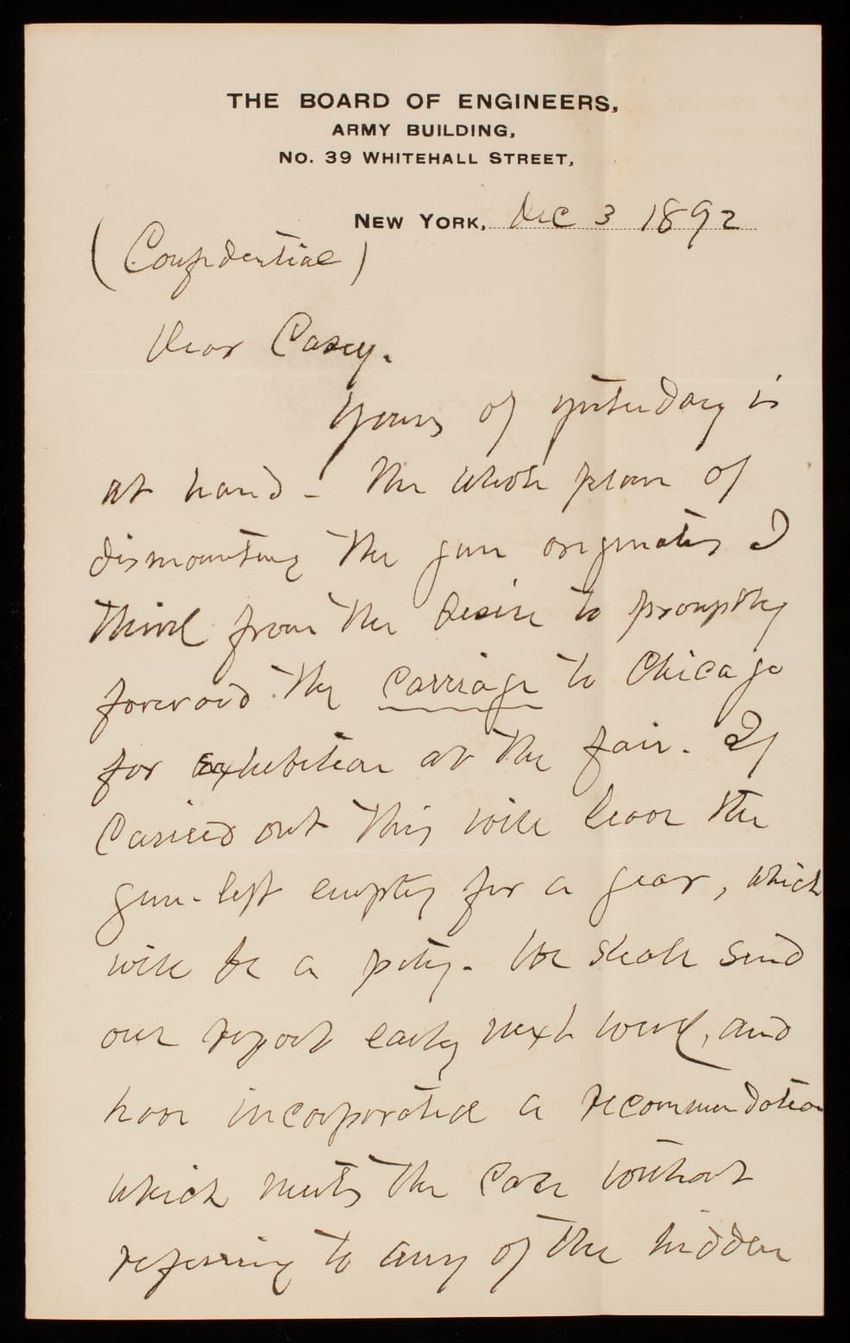 THE BOARD OF ENGINEERS,
ARMY BUILDING,
NO. 39 WHITEHALL STREET,
NEW YORK, Dec 3 1892
(Confidential)
Dear Casey.
Yours of yesterday is
at hand. The whole plan of
dismounting the gun originates I
think from the desire to promptly
forward the carriage to Chicago
for exhibition at the fair. If
carried out this will leave the
gun-lift empty for a year, which
will be a pity. We shall send
our report early next week, and
have incorporated a recommendation
which meets the case without
referring to any of the hidden